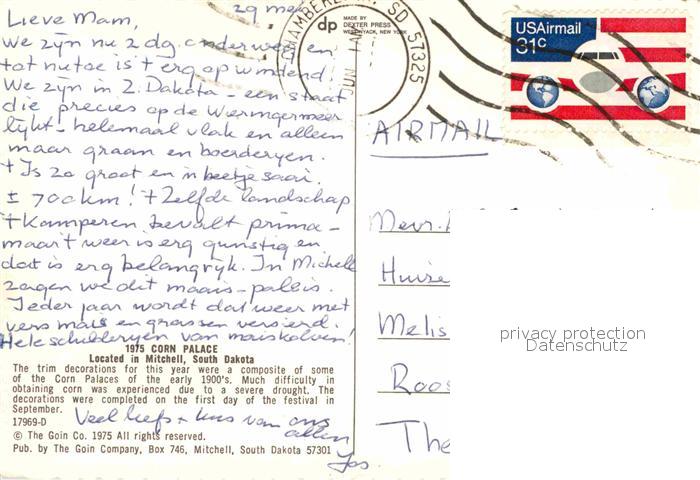 29 mei
Lieve Mam,
We zijn nu 2 dg. onderweg en
tot nu toe is 't erg opwindend
We zijn in Z. Dakota - een staat
die precies op de Wieringermeer
lijkt - helemaal vlak en alleen
maar graan en boerderyen.
't Is zo groot en 'n beetje saai.
± 700 km! 't Zelfde landschap
't Kamperen bevalt prima -
maar 't weer is erg gunstig en
dat is erg belangrijk. In Michell
zagen we dit mais-paleis.
Ieder jaar wordt dat weer met
vers mais en grassen versierd.
Hele schilderyen van maiskolven!
1975 CORN PALACE
Located in Mitchell, South Dakota
The trim decorations for this year were a composite of some
of the Corn Palaces of the early 1900's. Much difficulty in
obtaining corn was experienced due to a severe drought. The
decorations were completed on the first day of the festival in
September.
17969-D
Veel liefs + kus van ons
allen
Jos.
© The Goin Co. 1975 All rights reserved.
Pub. by The Goin Company, Box 746, Mitchell, South Dakota 57301
dp
MADE BY
DEXTER PRESS
WEST NYACK, NEW YORK
CHAMBERLAIN, SD 57325
JUN
USAirmail
31c
AIRMAIL
Mevr.
Huize
Melis
Roos
The
privacy protection
Datenschutz